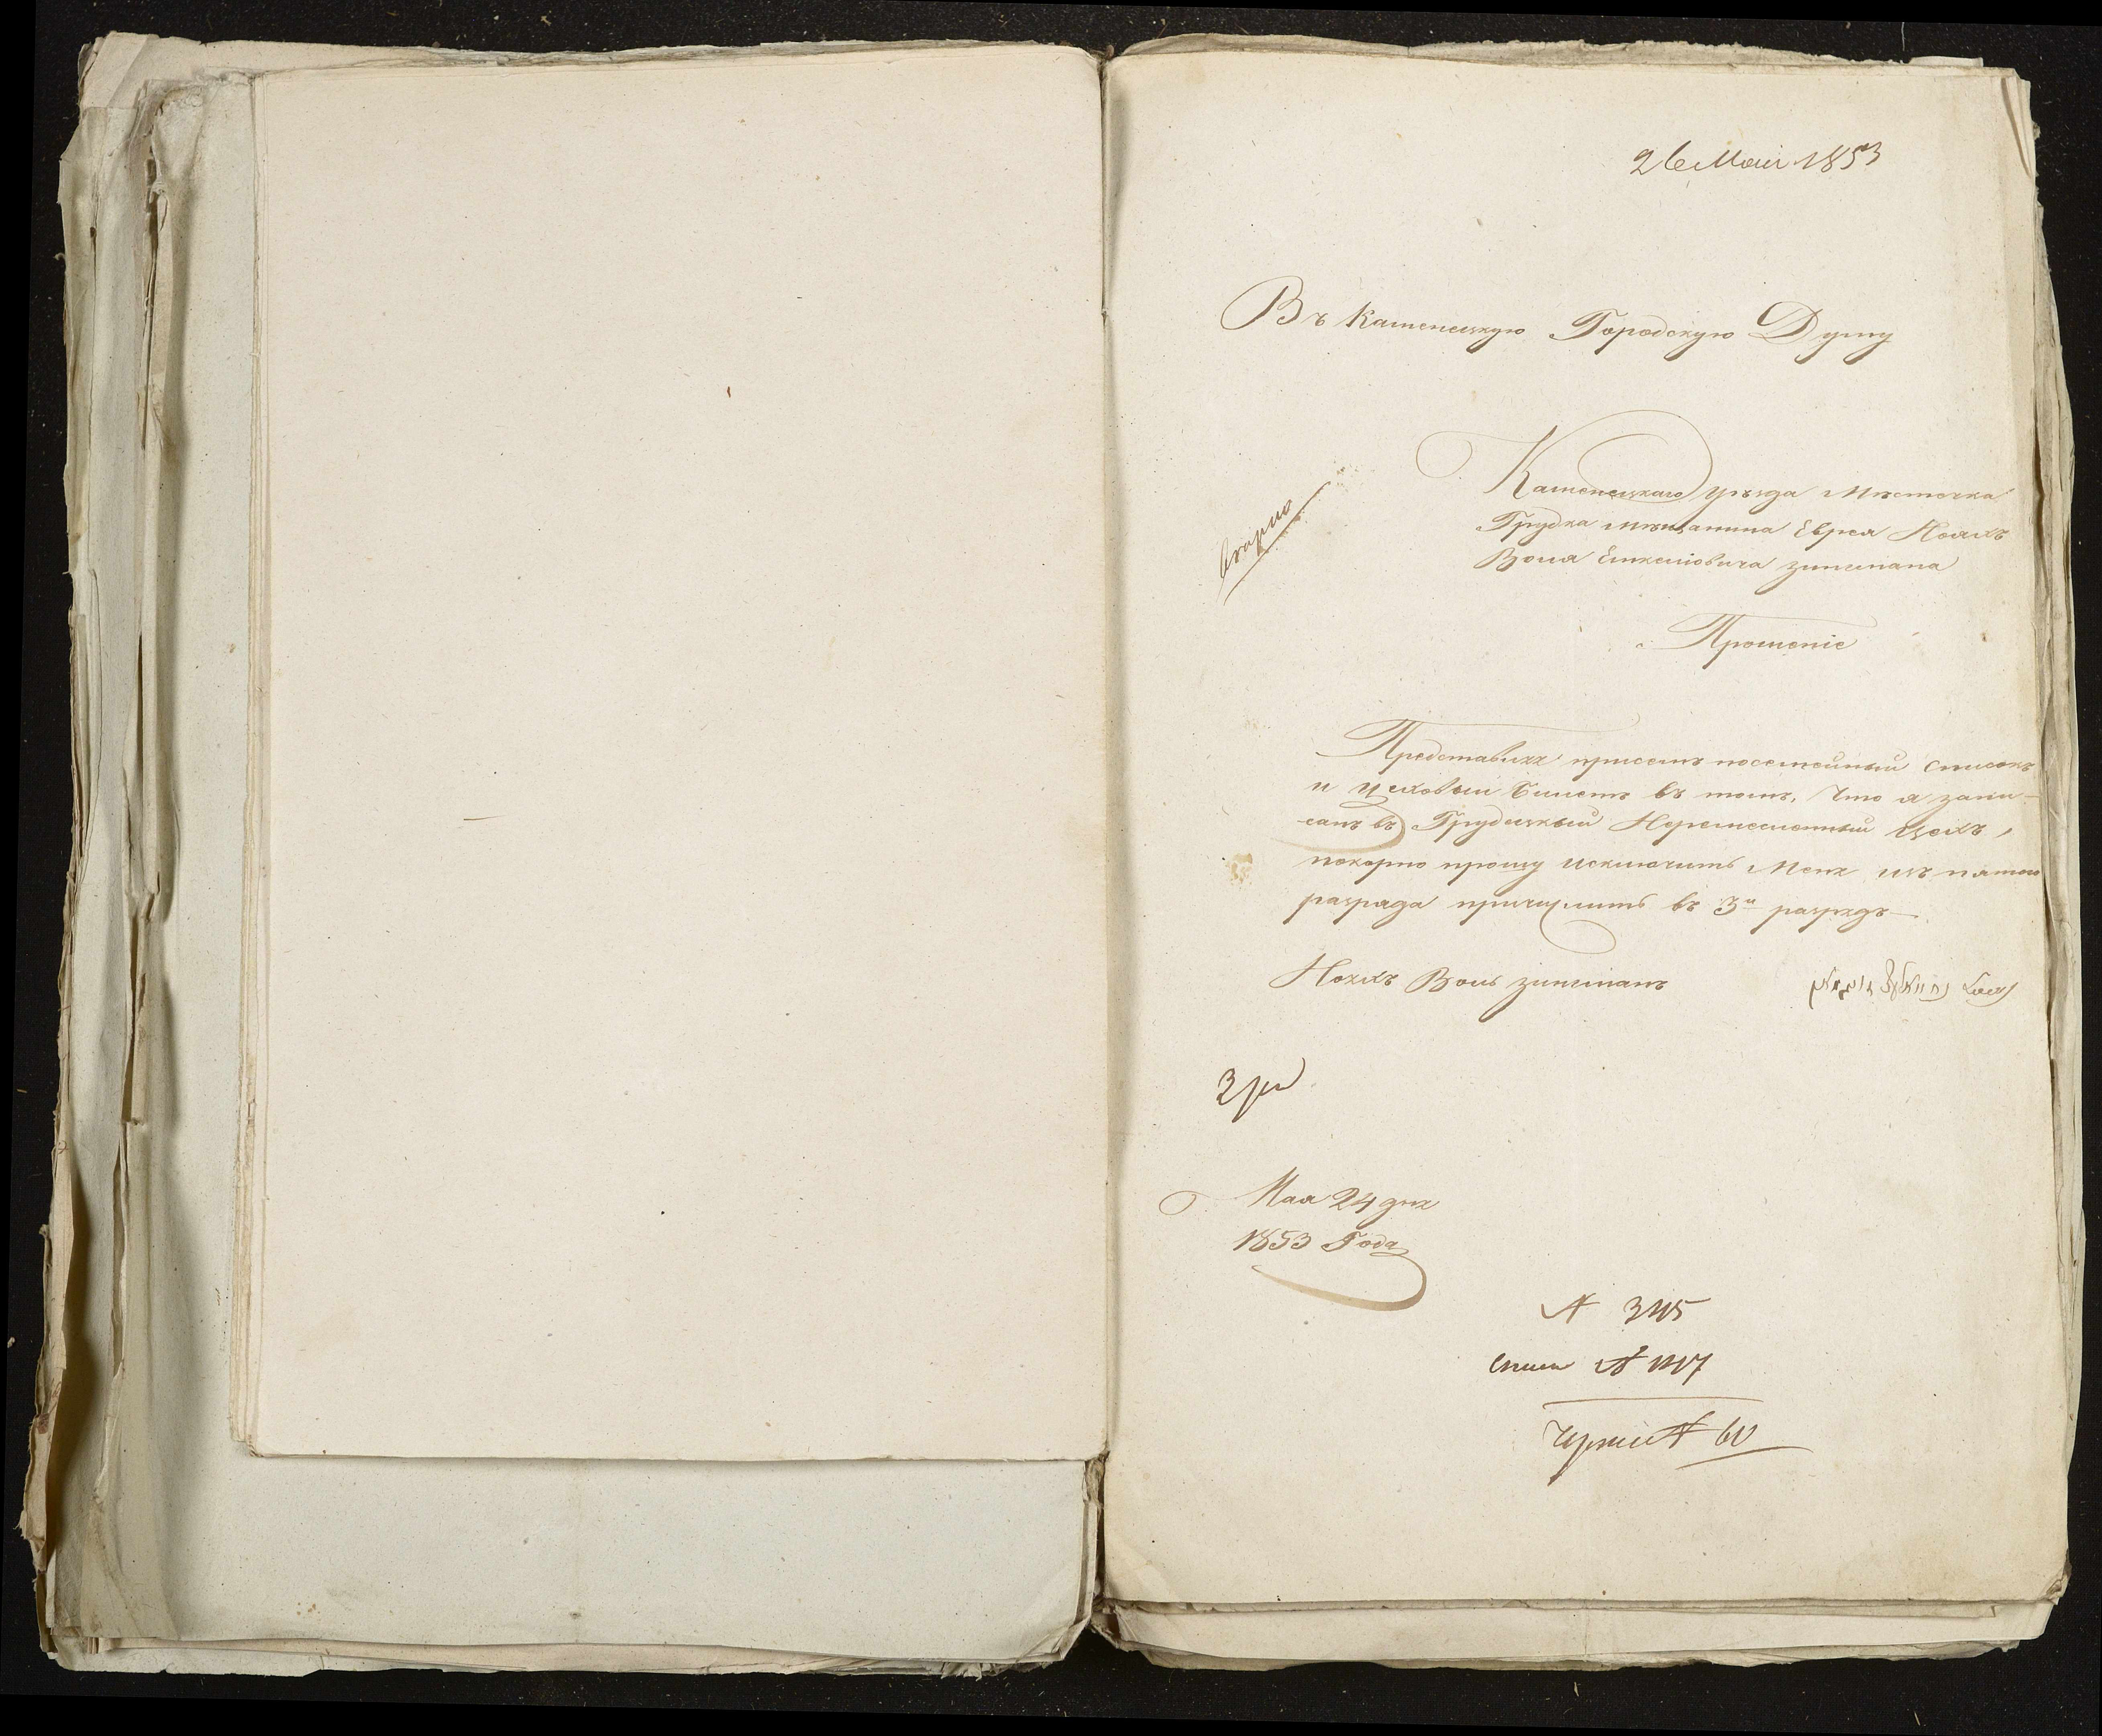 26 Маія 1853
Въ Каменецкую Городскую Думу
Каменецкаго уѣзда Мѣстечка
Грудка мѣщанина Еврея Нояхъ
Воля Енкелiовича зинглиана
Прошеніе
Представляя присемъ посемейный списокъ
и цеховый билетъ въ томъ, что я запи-
санъ въ Грудецкый Неремесленный цехъ,
покорно прошу исключить Меня изъ пятого
разряда причислить въ 3й разрядъ
Нояхъ Воль
Мая 24 дня
1853 Года
№ 345
№ 60